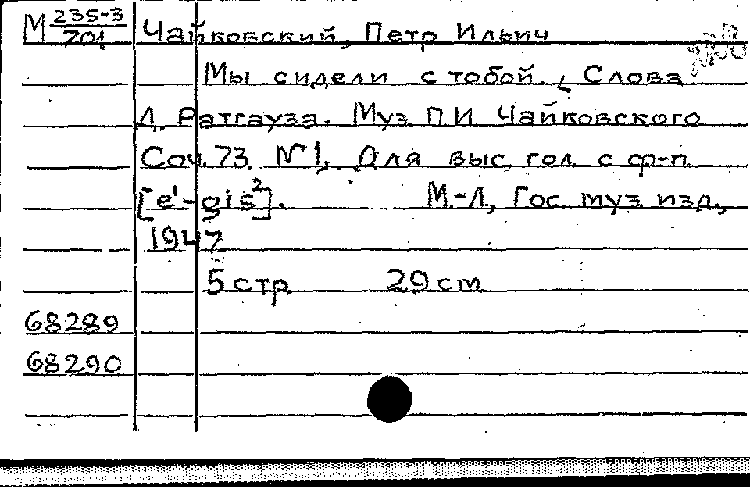 М 235-3/701 Чайковский, Петр Ильич
Мы сидели с тобой., Слова
Д. Ратгауза. Муз. П.И. Чайковского
Соч. 73. №1, Для выс. гол. с ф-п.
[e¹-gis²]. М.-Л., Гос. муз. изд.,
1947
5 стр 29 см
68289
68290